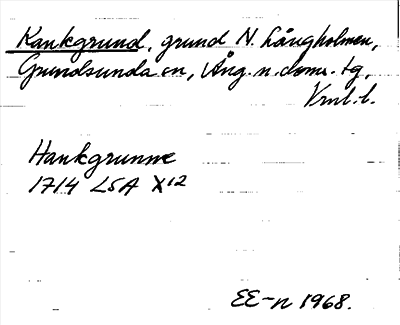 Kankgrund, grund N. Långholmen,
Grundsunda sn, Ång. n. doms. tg,
Vrml. l.
Hankgrunne
1714 LSA X12
EE-n 1968.